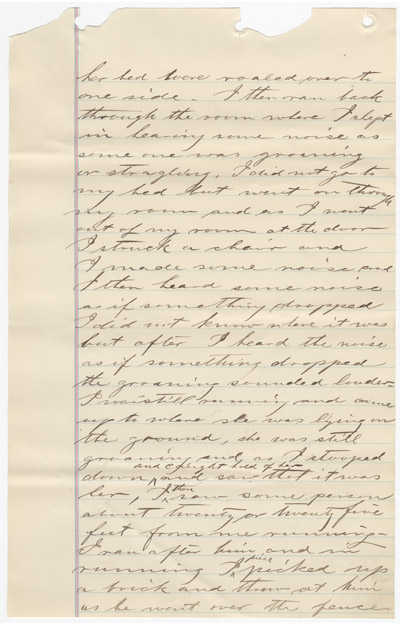 her bed were roaled over to
one side - I then ran back
through the room where I slept
in hearing some noise as
some one was groaning
or strugling, I did not go to
my bed but went on through
my room and as I went
out of my room at the door
I struck a chair and
I made some noise and
I then heard some noise
as if something dropped
I did not know where it was
but after I heard the noise
as if something dropped
the groaning sounded louder-
I was still running and came
up to where she was lying on
the ground, she was still
groaning and as I stooped
down and caught hold of her and saw that it was
her, I then saw some person
about twenty or twenty five
feet from me running -
I ran after him and in
running I picked up
a brick and threw at him
as he went over the fence